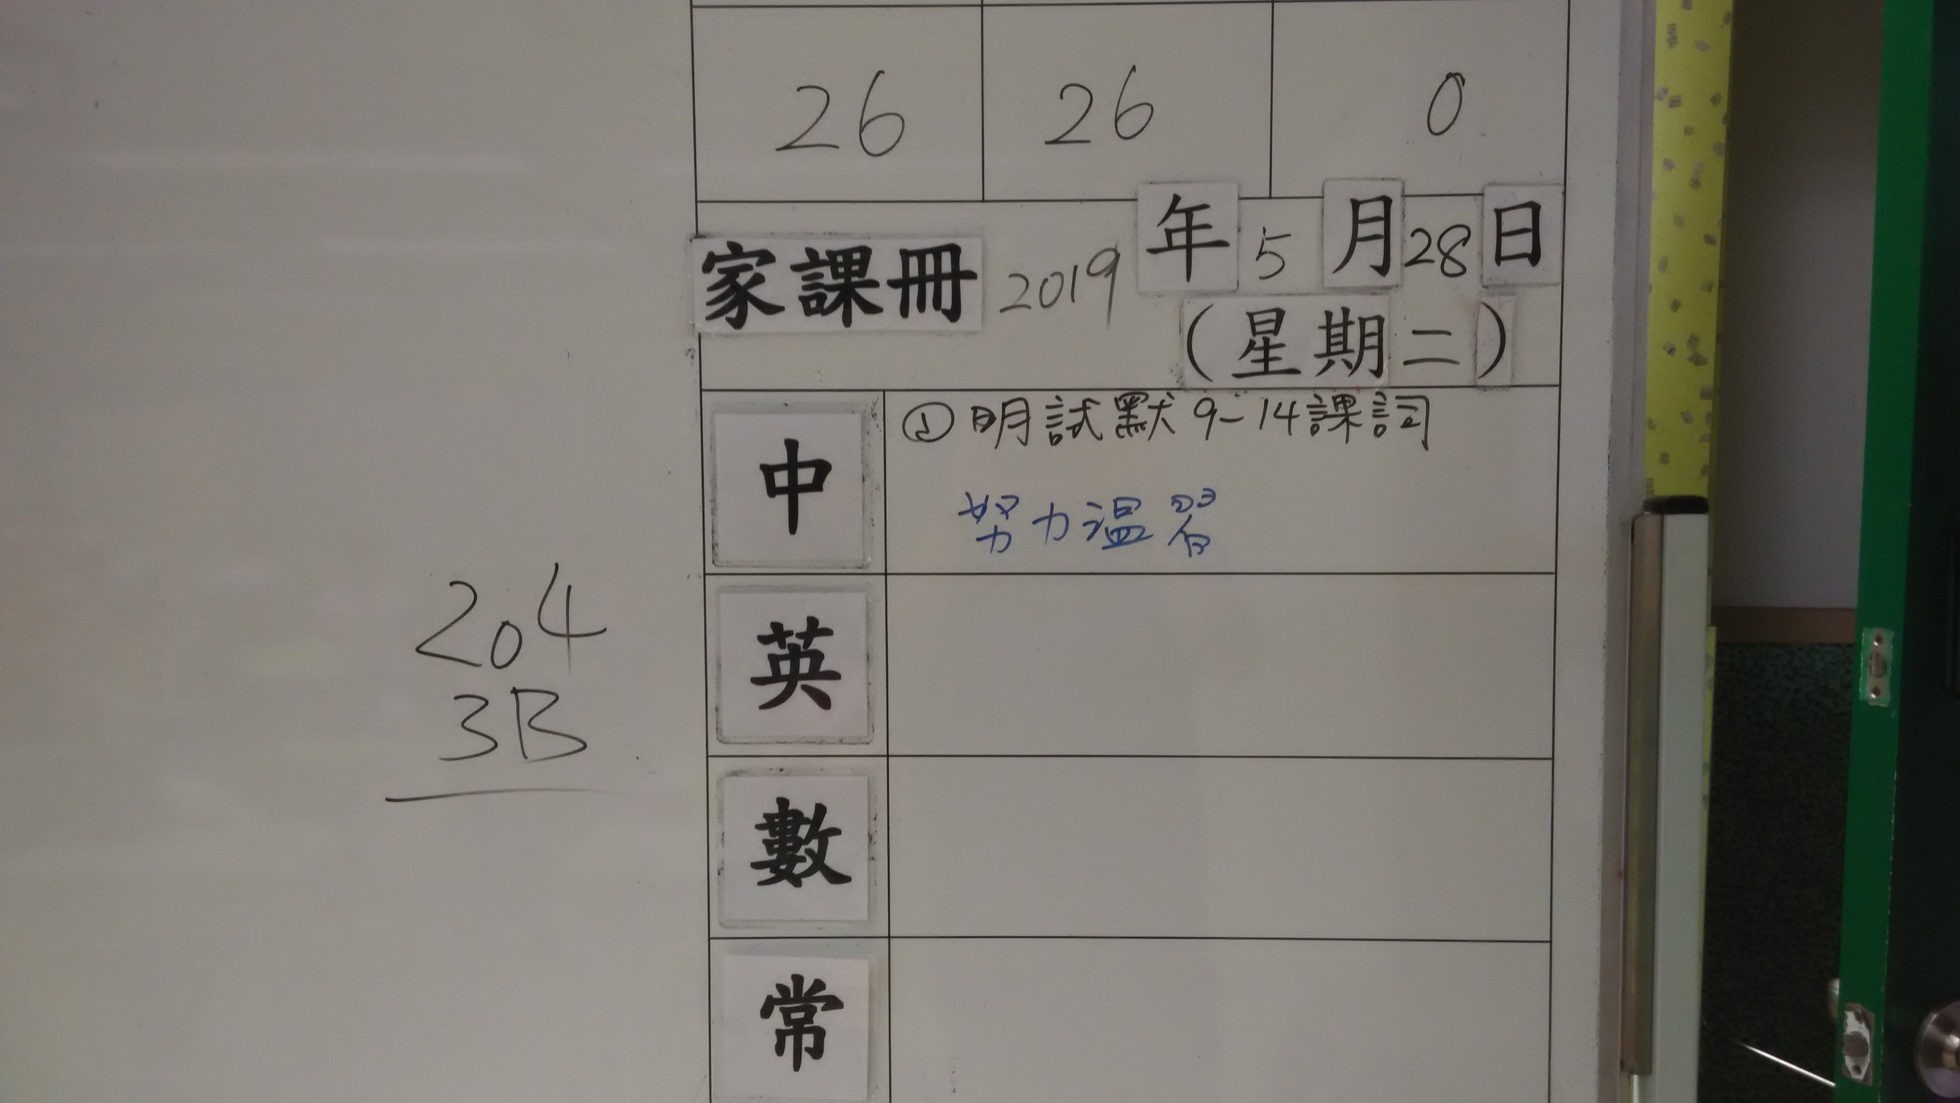 26 26 0
家課冊 2019年5月28日
（星期二）
中 ①明試默9-14課詞
努力溫習
英
數
常
204
3B